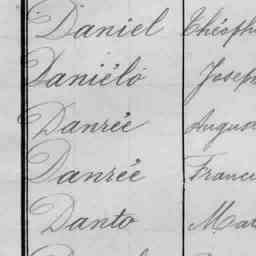 Daniel Théoph
Daniélo Joseph
Danrée August
Danrée Franc
Danto Mar